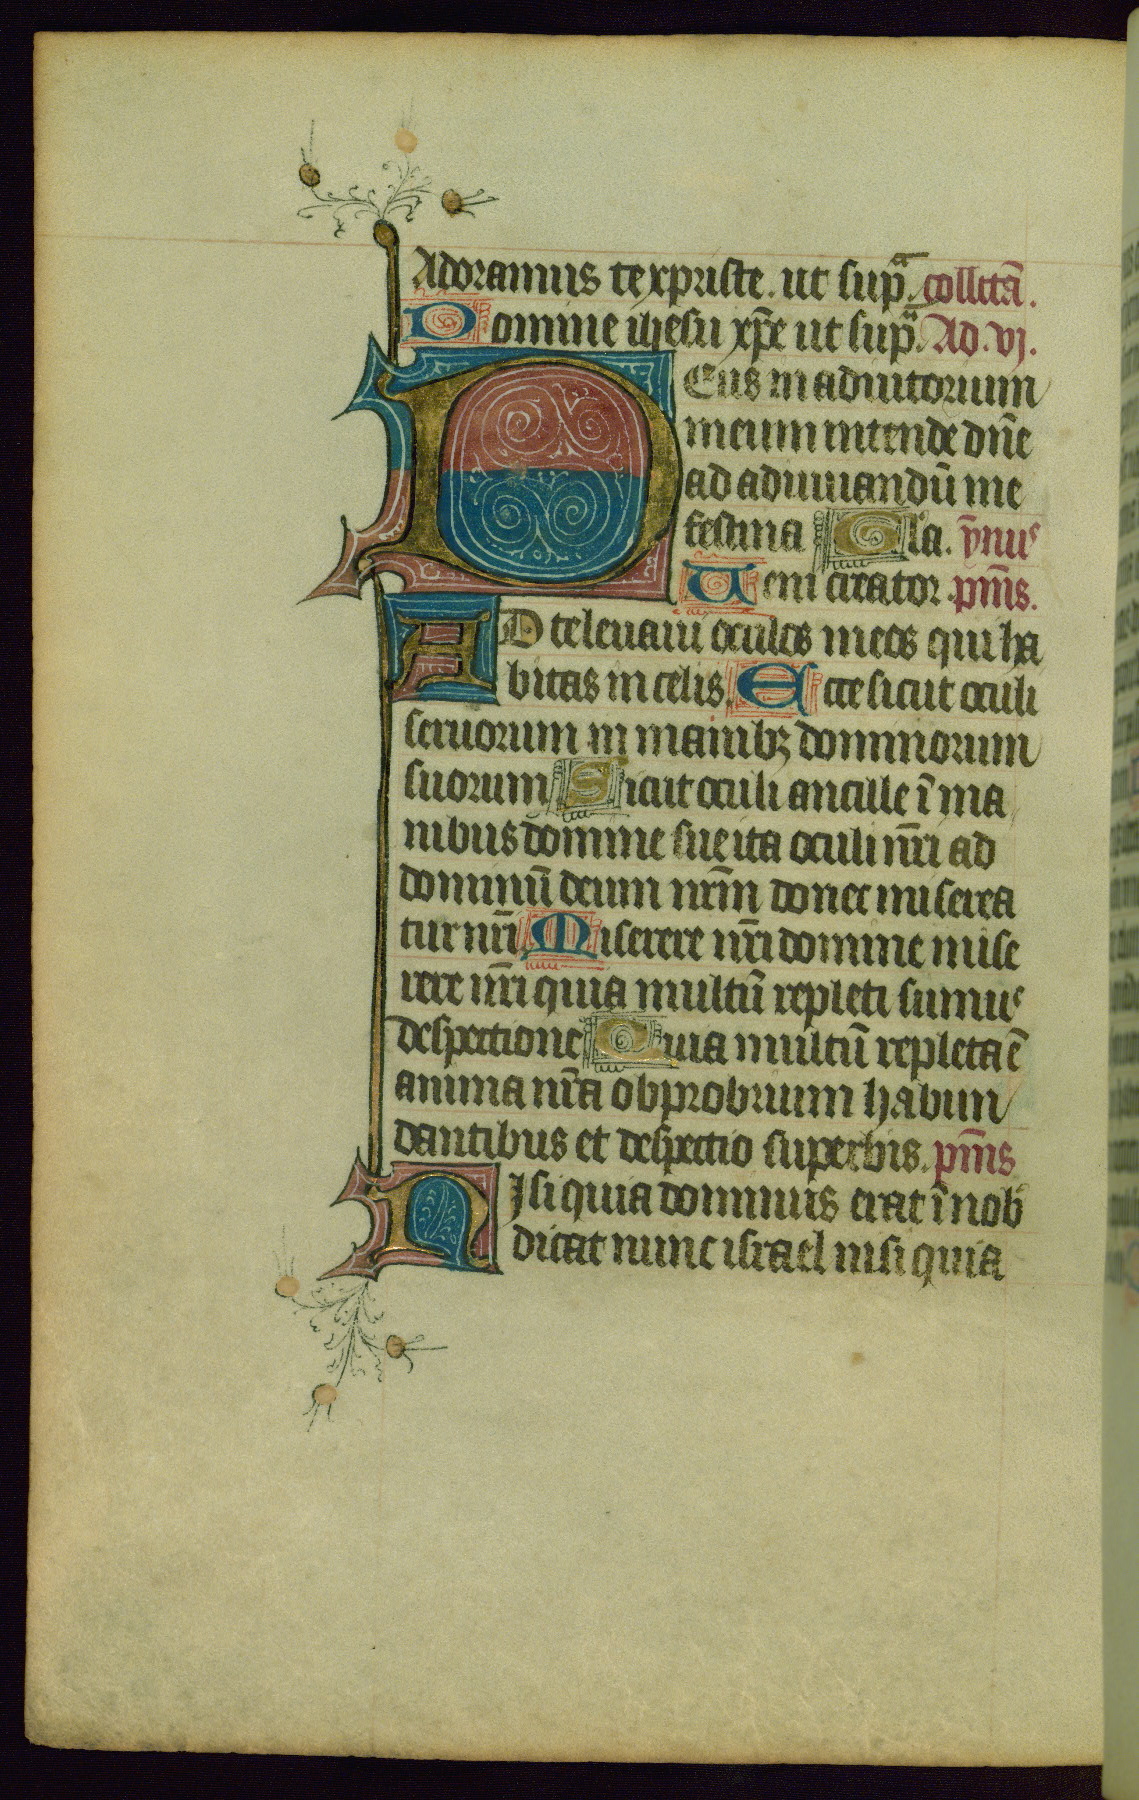 Adoramus te xpriste. ut sup̄ᵃ. collctā.
Domine ihesu xp̄e ut supᵃ. Ad. vj.
DEus in adiutorium
meum intende dn̄e
ad adiuuandū me
festina Gla. ẏnus
Ueni creator. pm̄s.
AD te leuaui oculos meos qui ha
bitas in celis. Ecce sicut oculi
seruorum in manibꝫ dominorum
suorum Sicut oculi ancille ī ma
nibus domine sue ita oculi nr̄i ad
dominū deum nrm̄ donec miserea
tur nr̄i Miserere nr̄i domine mise
rere nr̄i quia multū repleti sumus
despectione Quia multū repleta ē
anima nr̄a obprobrium habun
dantibus et despectio superbis. pm̄s
NIsi quia dominus erat ī nob
dicat nunc israel nisi quia